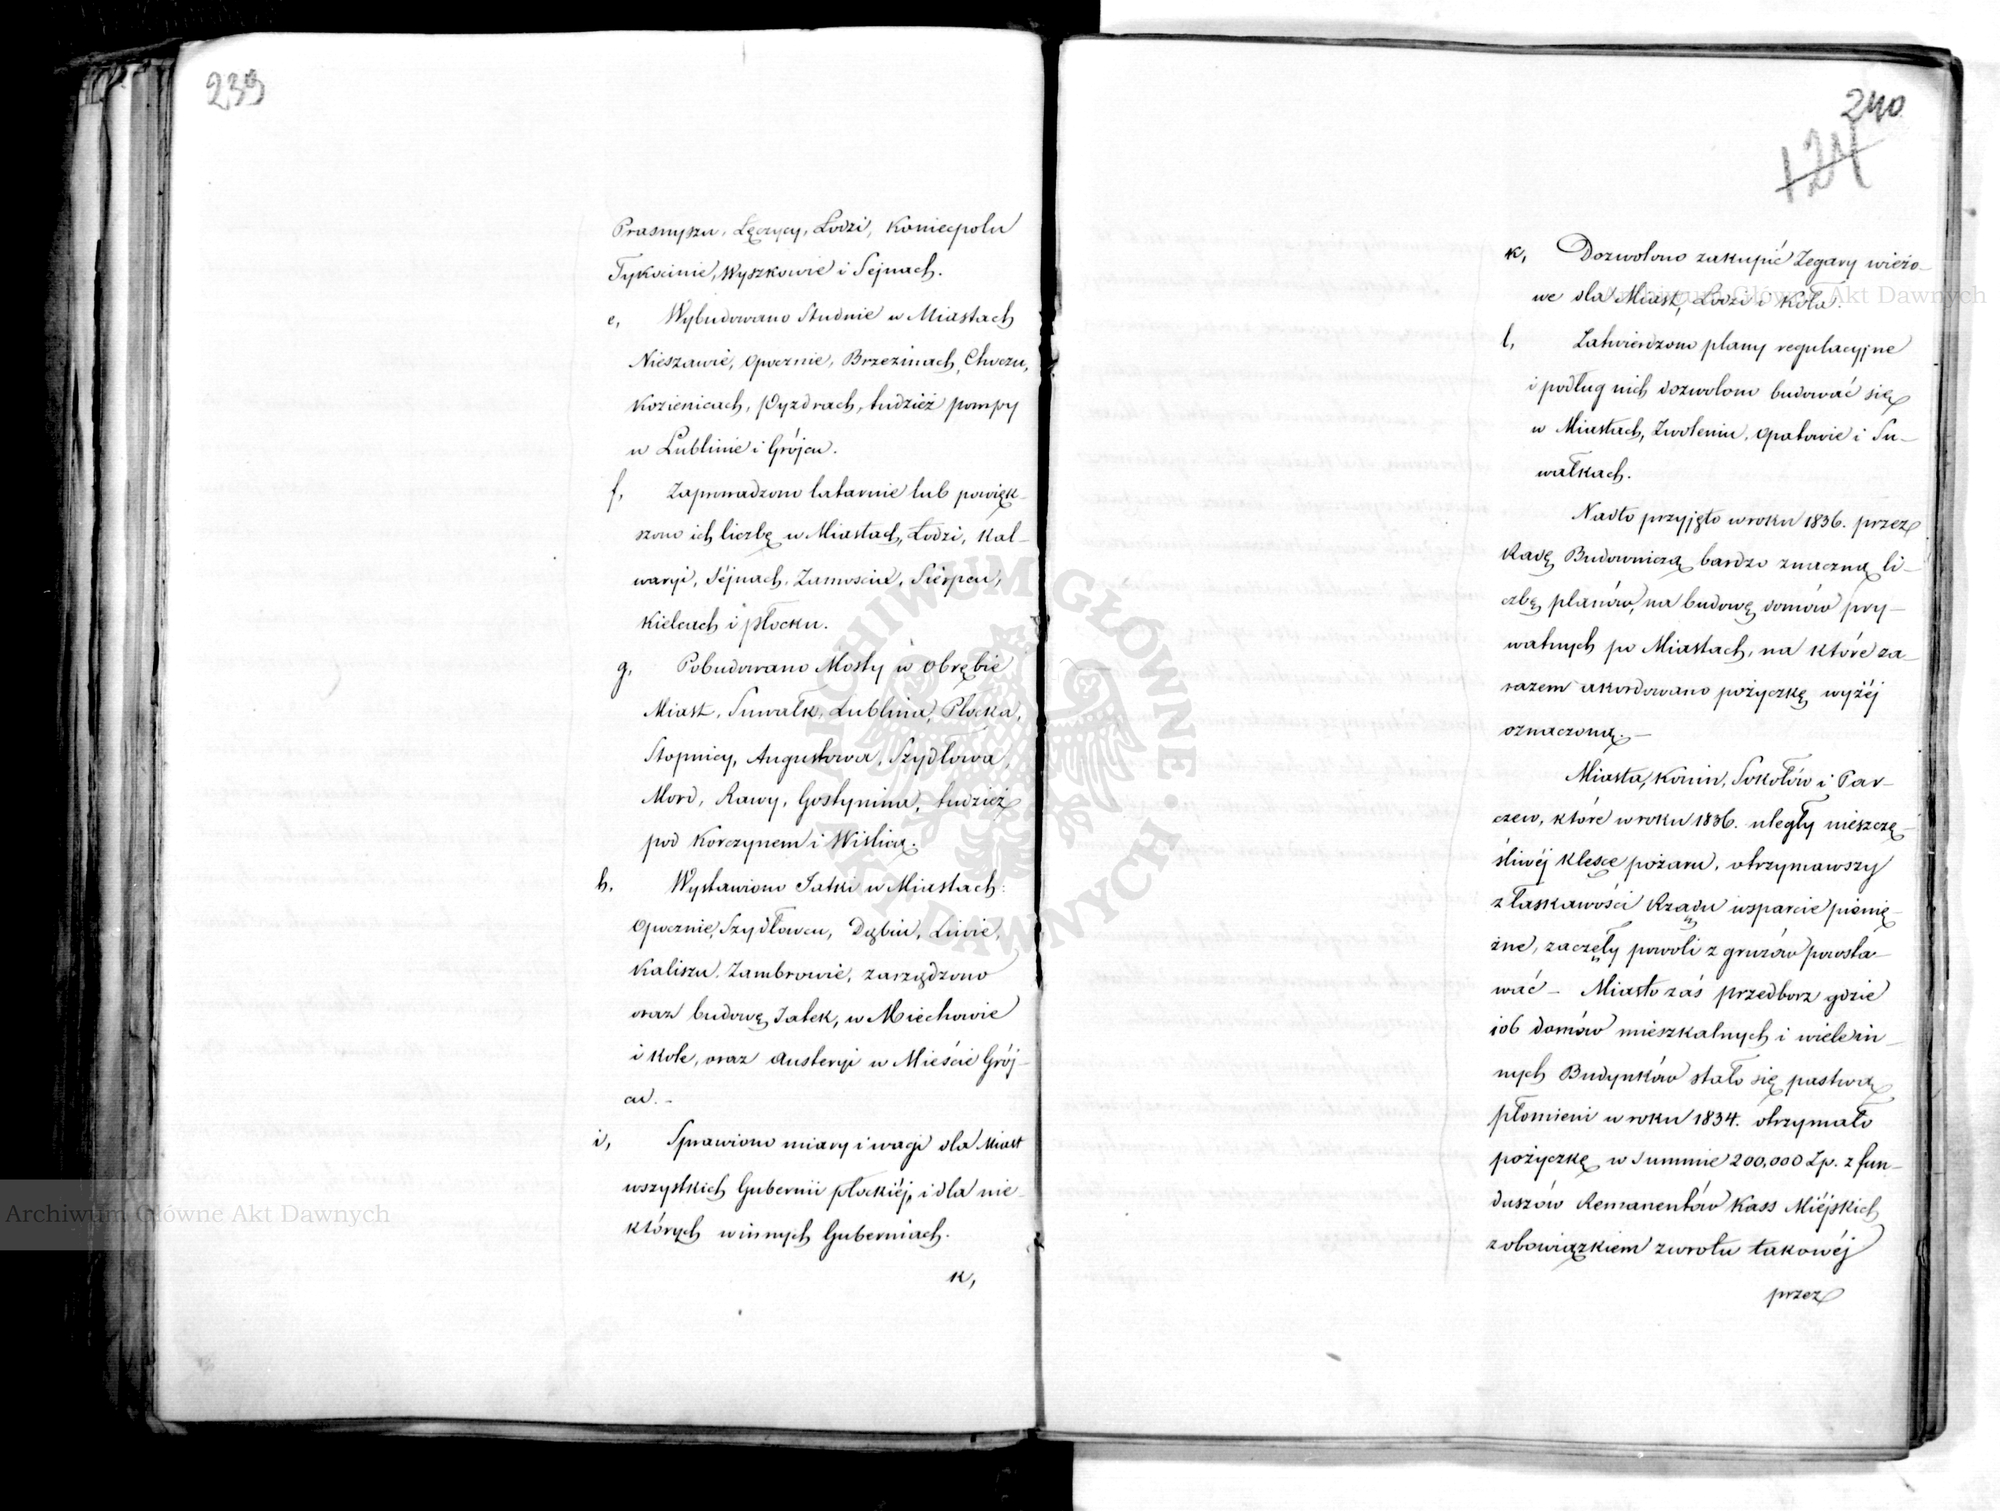 239
Prasnyszu, Łęczycy, Łodzi, Koniecpolu
Tykocinie, Wyszkowie i Sejnach.
e, Wybudowano Studnie w Miastach
Nieszawie, Opocznie, Brzezinach, Chęczu,
Kozienicach, Pyzdrach, tudzież pompy
w Lublinie i Grójcu.
f, Zaprowadzono latarnie lub powięk-
szono ich liczbę w Miastach, Łodzi, Kal-
waryi, Séjnach, Zamościu, Sierpcu,
Kielcach i Płocku.
g, Pobudowano Mosty w obrębie
Miast, Suwałk, Lublina, Płocka,
Stopnicy, Augustowa, Szydłowa,
Mord, Rawy, Gostynina, tudzież
pod Korczynem i Wiślicą.
h, Wystawiono Jatki w Miastach:
Opocznie, Szydłowcu, Dąbiu, Liwie,
Kaliszu, Zambrowie, zarządzono
oraz budowę Jatek, w Miechowie
i Kole, oraz Austeryi w Mieście Grój-
cu. -
i, Sprawiono miary i wagi dla Miast
wszystkich Gubernii Płockiéj, i dla nie-
których w innych Guberniach.
k,
240
124
k, Dozwolono zakupić Zegary wieżo-
we dla Miast, Łodzi i Koła.
l, Zatwierdzono plany regulacyjne
i podług nich dozwolono budować się
w Miastach, Zwoleniu, Opatowie i Su-
wałkach.
Nadto przyjęto w roku 1836. przez
Radę Budowniczą bardzo znaczną li-
czbę planów, na budowę domów pry-
watnych po Miastach, na które za-
razem akordowano pożyczkę wyżéj
oznaczoną. -
Miasta, Konin, Sokołów i Par-
czew, które w roku 1836. uległy nieszczę-
śliwéj klęsce pożaru, otrzymawszy
z łaskawości Rządu wsparcie pienię-
żne, zaczęły powoli z gruzów powsta-
wać - Miasto zaś Przedborz gdzie
106 domów mieszkalnych i wiele in-
nych Budynków stało się pastwą
płomieni w roku 1834. otrzymało
pożyczkę w Summie 200,000 Zp. z fun-
duszów Remanentów Kass Miéjskich
z obowiązkiem zwrotu takowéj
przez
Archiwum Główne Akt Dawnych
Archiwum Główne Akt Dawnych
ARCHIWUM GŁÓWNE • AKT DAWNYCH •